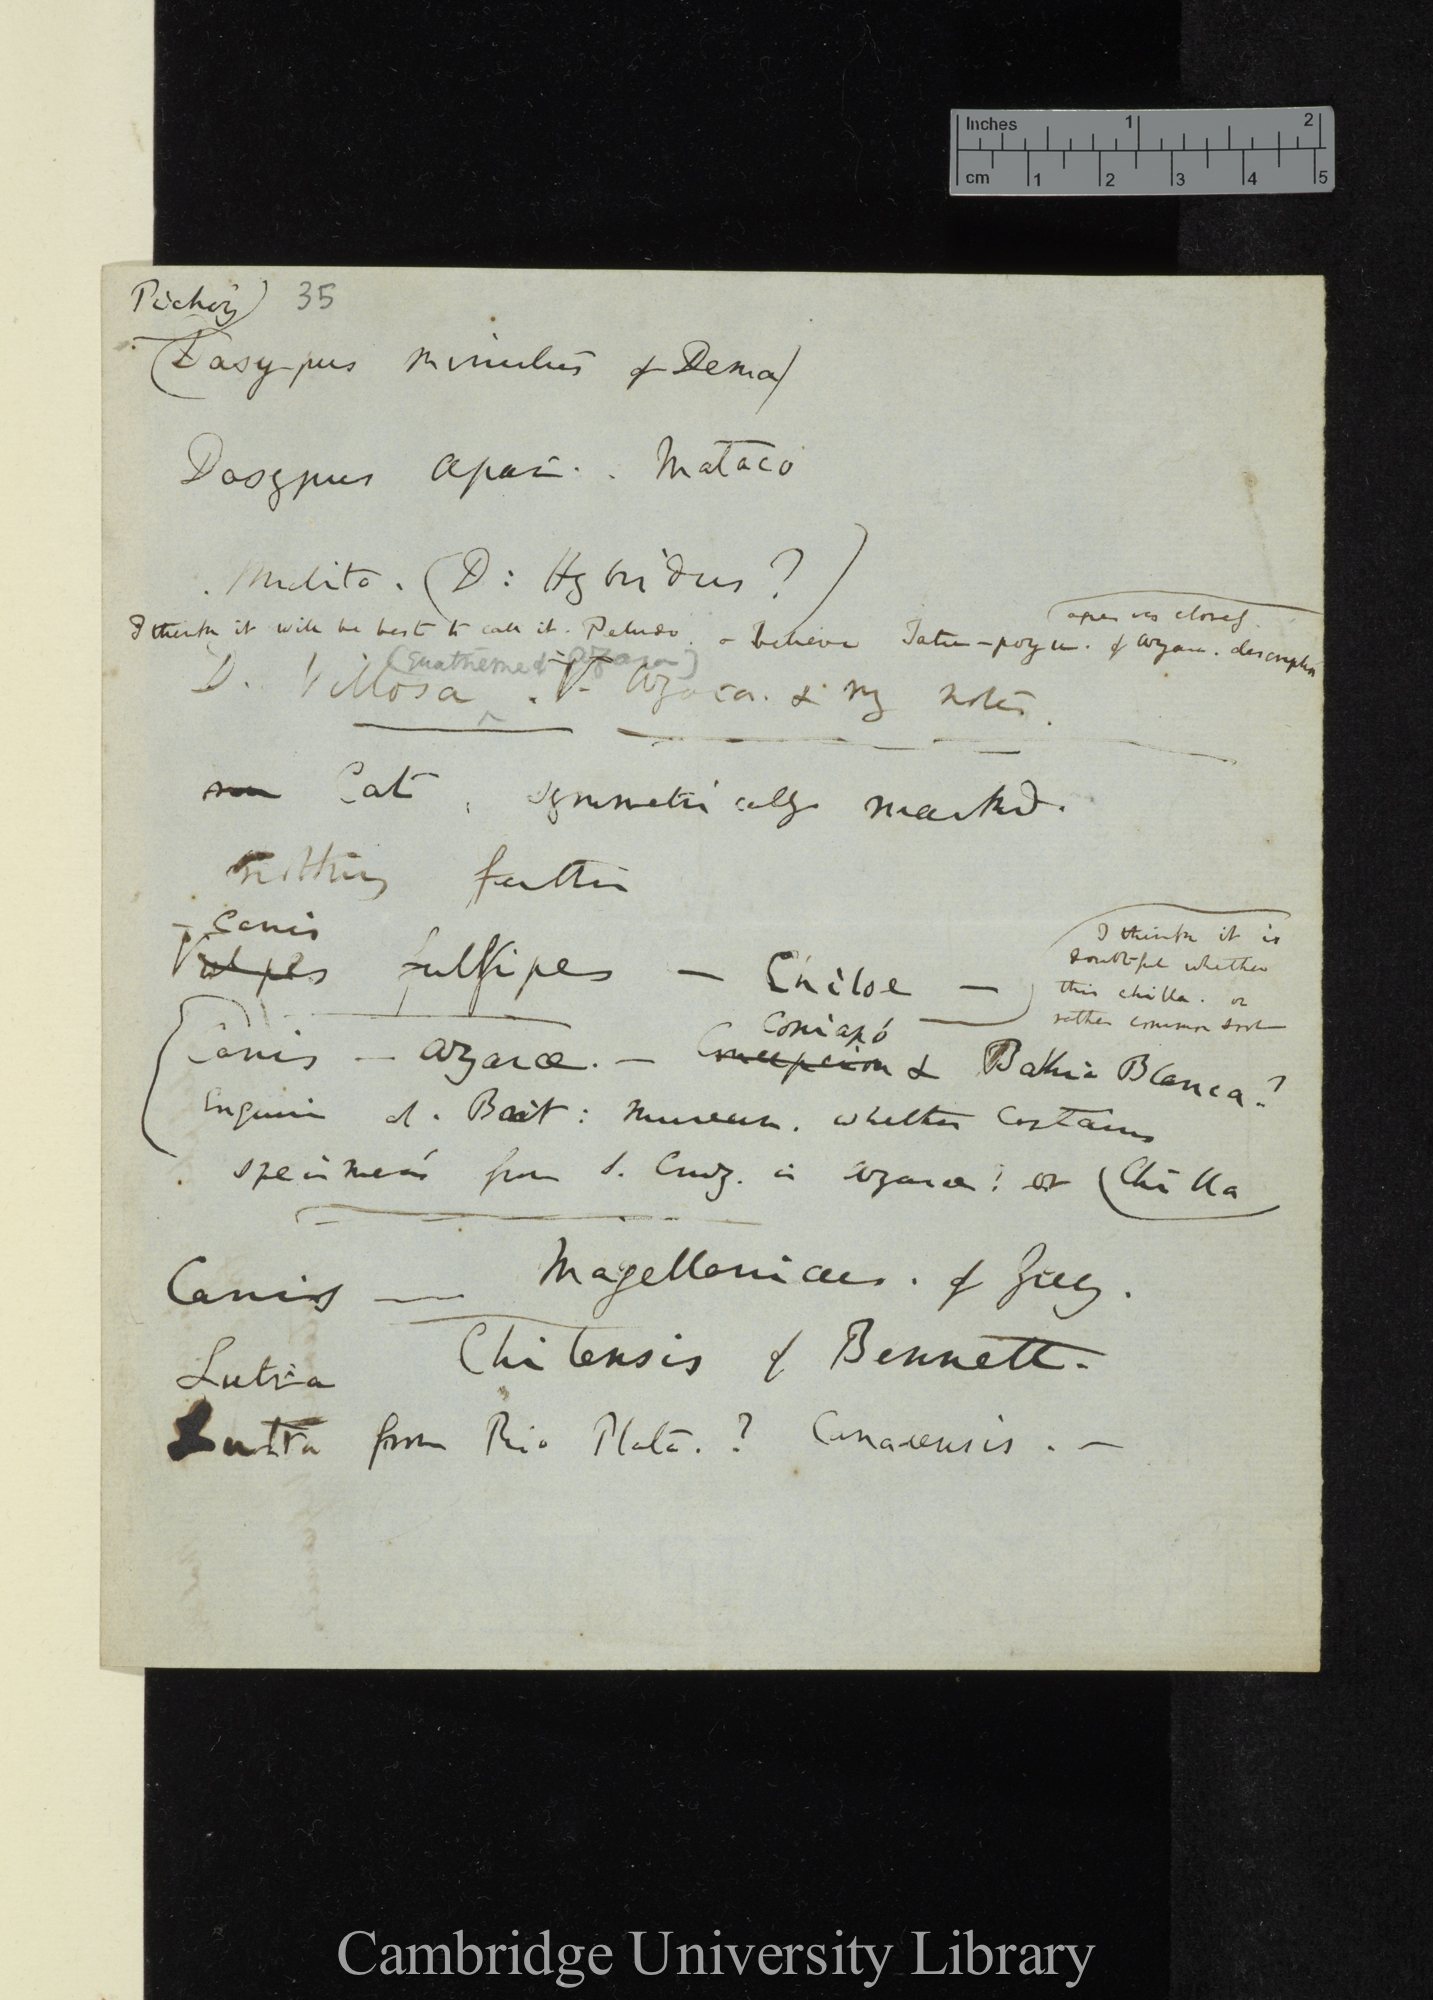 Inches 1 2
cm 1 2 3 4 5
Pichiy) 35
(Dasypus minutus of Desma)
Dasypus apar. . Mataco
. Mulita. (D: Hybridus?)
agrees closely
I think it will be best to call it. Peludo. - I believe Tatu-poyu. of Azara. description
(quatrieme d'Azara)
D. Villosa . V. Azara. & my notes.
Cat , symmetrically marked.
nothing further
- Canis
Vulpes fulvipes — Chiloe —
I think it is
doubtful whether
this chilla. or
rather common sort
Copiapò
Canis — Azarae. — Concepcion & Bahia Blanca?
Enquire at. Brit: Museum. whether contains
specimens from S. Cruz. is Azarae? or (Chilla
Canis — Magellanicus. of Grey.
Lutra Chilensis of Bennett.
Lutra from Rio Plata.? Canadensis. —
Cambridge University Library